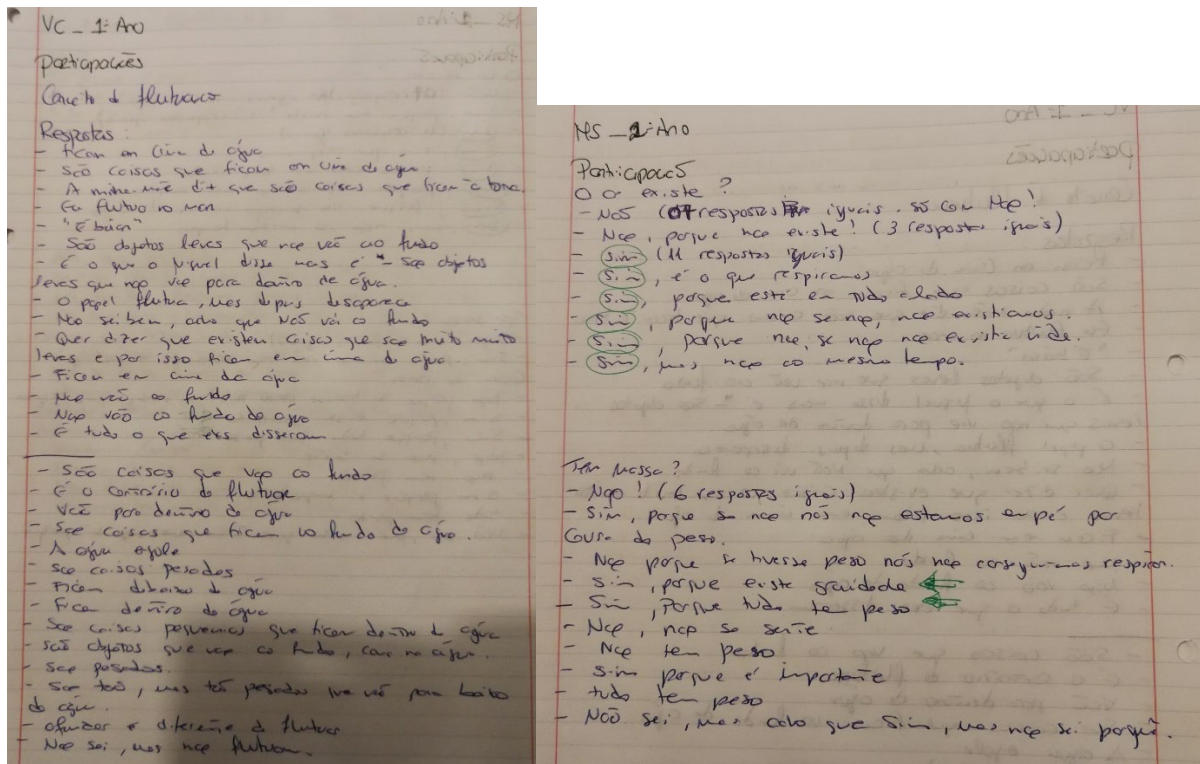 VC _ 1º Ano
Participações
Conceito de flutuação
Respostas:
- Ficam em cima da água
- São coisas que ficam em cima da água
- A minha mãe diz que são coisas que ficam à tona.
- Eu flutuo no mar
- "É boiar"
- São objetos leves que não vão ao fundo
- É o que o Miguel disse mas é - São objetos
leves que não vão para dentro de água.
- O papel flutua, mas depois desaparece
- Não sei bem, acho que não vai ao fundo
- Quer dizer que existem coisas que são muito muito
leves e por isso ficam em cima da água
- Ficam em cima da água
- Não vão ao fundo
- Não vão ao fundo da água
- É tudo o que eles disseram
- São coisas que vão ao fundo
- É o contrário de flutuar
- Vão para dentro da água
- São coisas que ficam no fundo da água.
- A água engole
- São coisas pesadas
- Ficam debaixo da água
- Ficam dentro da água
- São coisas pequenas que ficam dentro da água
- São objetos que vão ao fundo, como na água.
- São pesados.
- São tão, mas tão pesados que vão para baixo
da água.
- afundar é diferente de flutuar
- Não sei, mas não flutuam.
MS _ 1º Ano
Participações
O ar existe?
- Não (07 respostas iguais. só com Não!
- Não, porque não existe! (3 respostas iguais)
- Sim (11 respostas iguais)
- Sim, é o que respiramos
- Sim, porque está em todo o lado
- Sim, porque se não, não existíamos.
- Sim, porque, se não não existia vida.
- Sim, mas não ao mesmo tempo.
Tem massa?
- Não! (6 respostas iguais)
- Sim, porque se não nós não estamos em pé por
causa do peso.
- Não porque se tivesse peso nós não conseguíamos respirar.
- Sim, porque existe gravidade
- Sim, porque tudo tem peso
- Não, não se sente
- Não tem peso
- Sim porque é importante
- tudo tem peso
- Não sei, mas acho que Sim, mas não sei porquê.